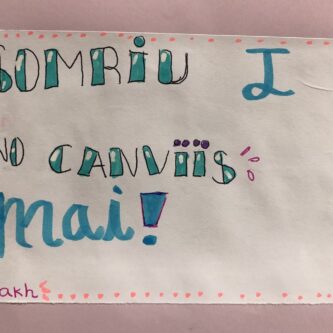 SOMRIU I
NO CANVIÏS
mai!
akh